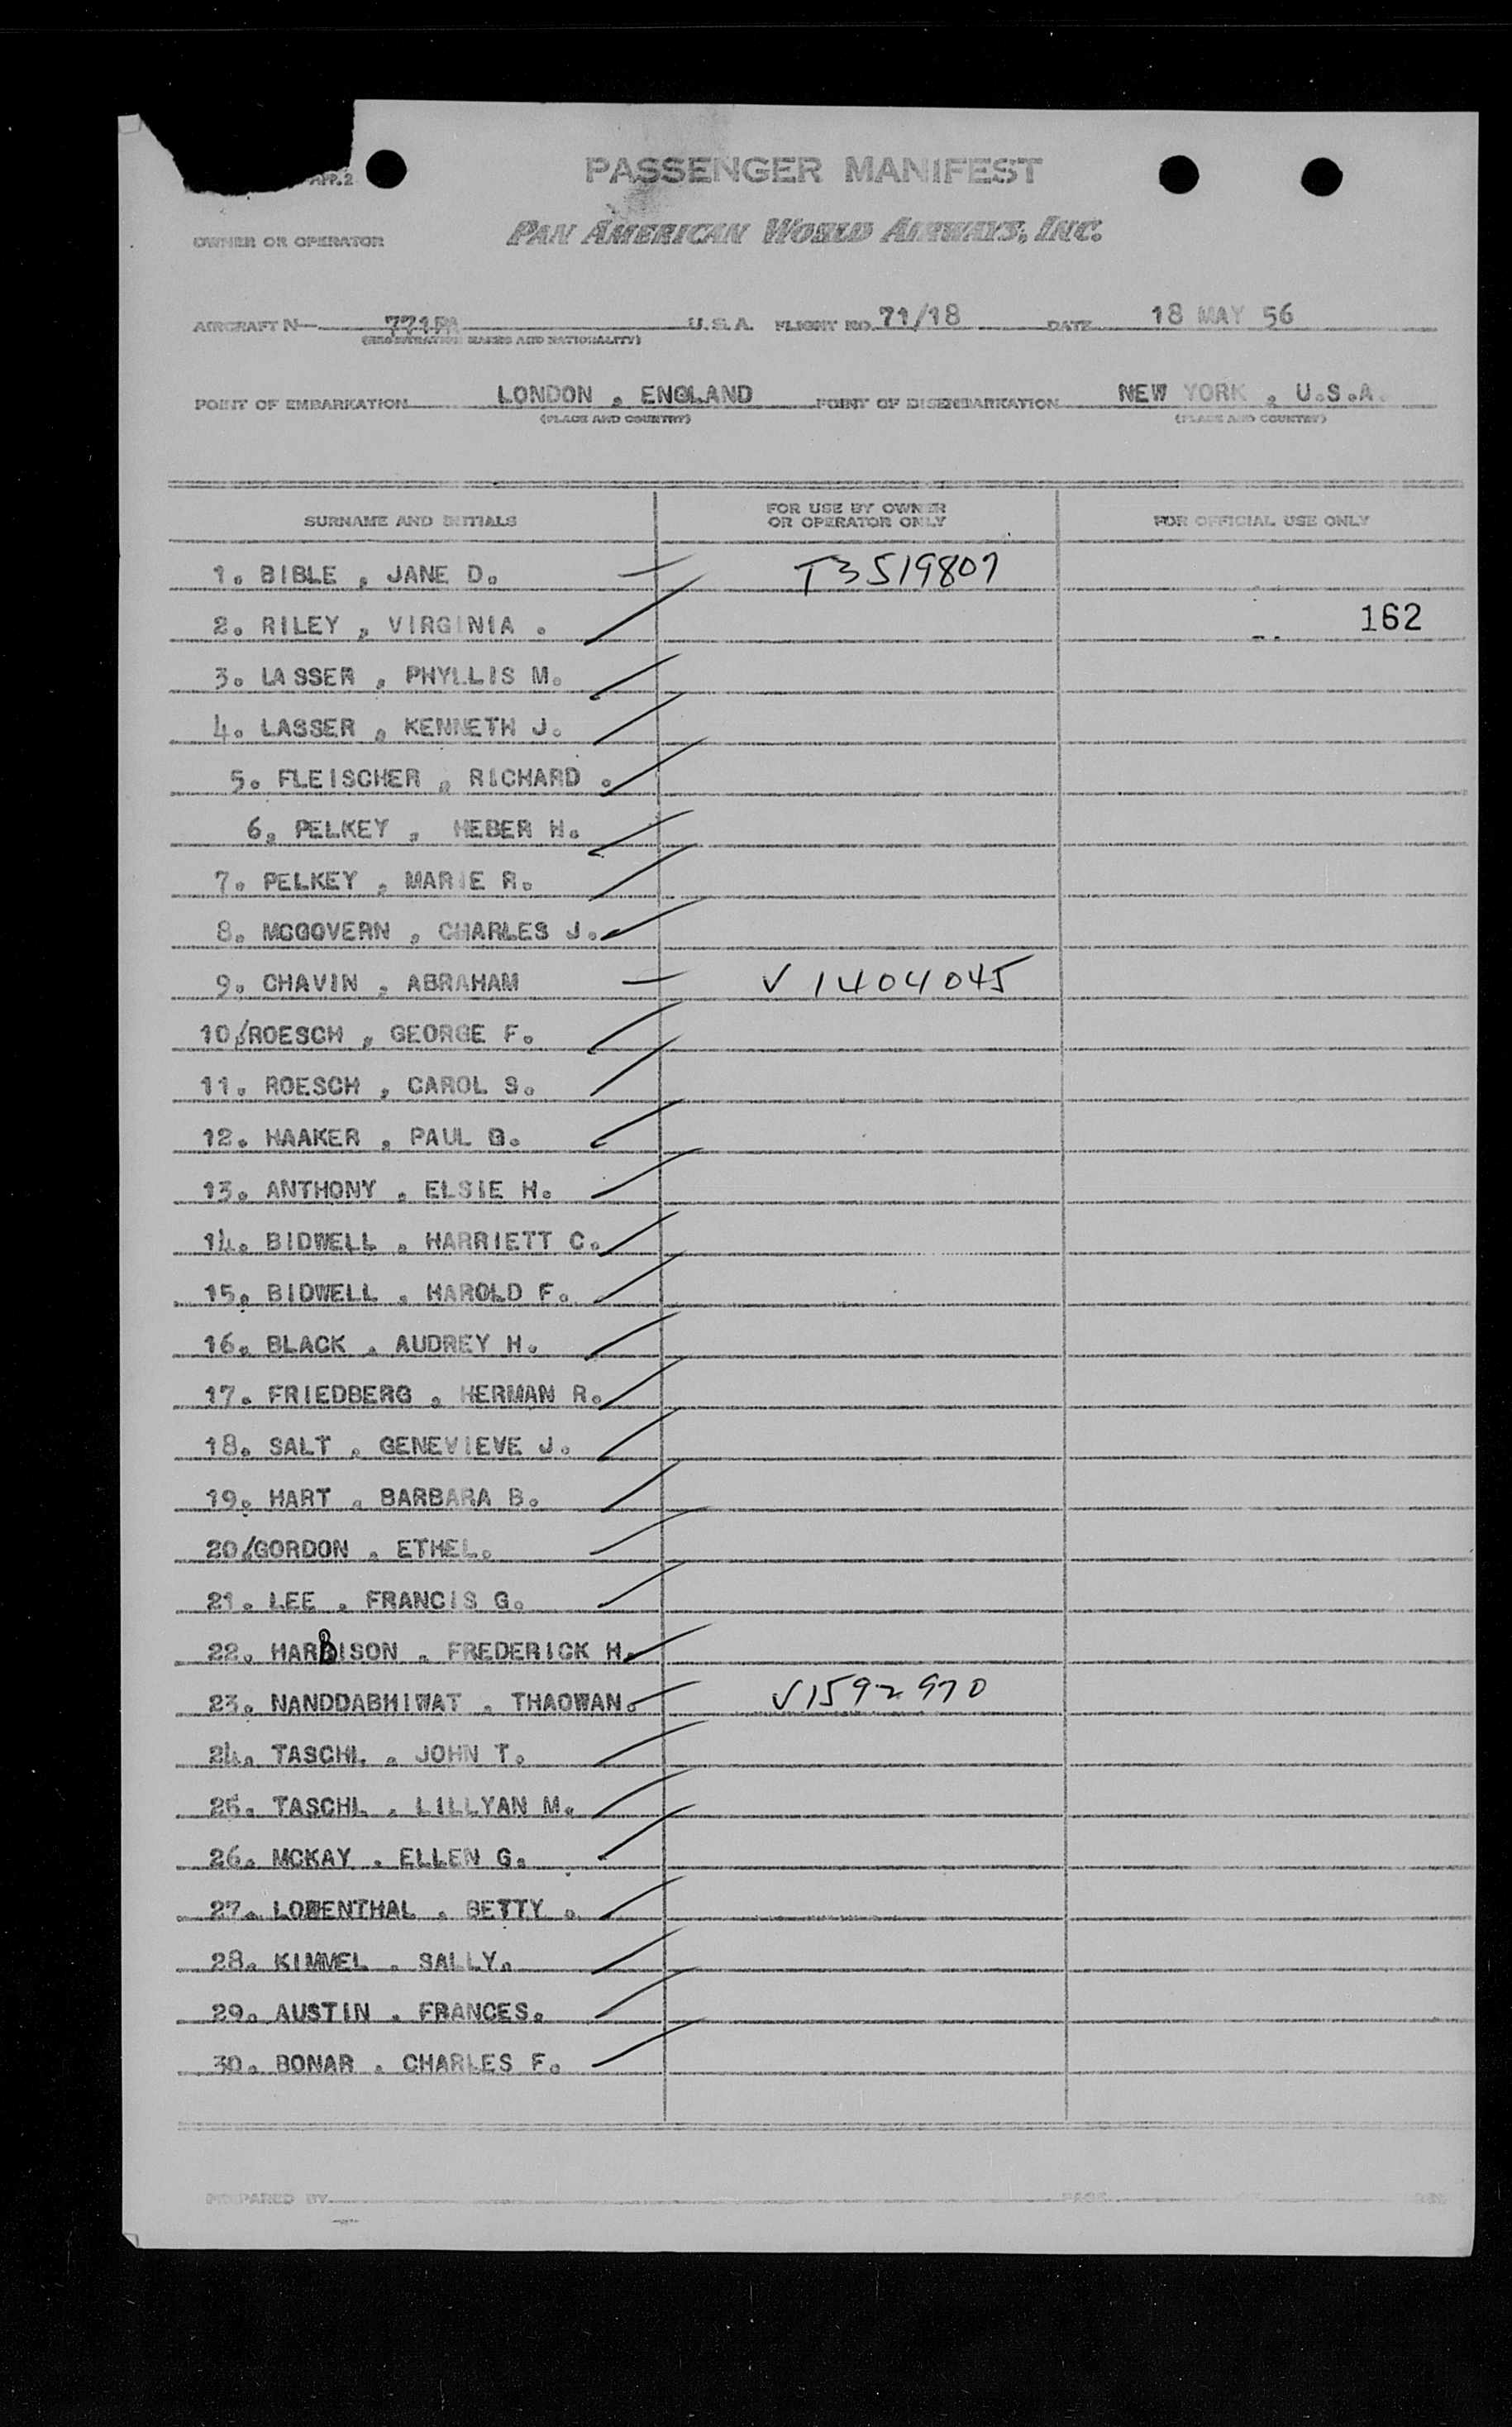 APP.2
PASSENGER MANIFEST
OWNER OR OPERATOR PAN AMERICAN WORLD AIRWAYS, INC.
AIRCRAFT N— 771PA U.S.A. FLIGHT NO. 71/18 DATE 18 MAY 56
(REGISTRATION MARKS AND NATIONALITY)
POINT OF EMBARKATION LONDON , ENGLAND POINT OF DISEMBARKATION NEW YORK , U.S.A.
(PLACE AND COUNTRY) (PLACE AND COUNTRY)
SURNAME AND INITIALS FOR USE BY OWNER OR OPERATOR ONLY FOR OFFICIAL USE ONLY
1. BIBLE , JANE D. — T3519807
2. RILEY , VIRGINIA . 162
3. LASSER , PHYLLIS M.
4. LASSER , KENNETH J.
5. FLEISCHER , RICHARD .
6. PELKEY , HEBER H.
7. PELKEY , MARIE R.
8. MCGOVERN , CHARLES J.
9. CHAVIN , ABRAHAM — V1404045
10/ROESCH , GEORGE F.
11. ROESCH , CAROL S.
12. HAAKER , PAUL G.
13. ANTHONY , ELSIE H.
14. BIDWELL , HARRIETT C.
15. BIDWELL , HAROLD F.
16. BLACK , AUDREY H.
17. FRIEDBERG , HERMAN R.
18. SALT , GENEVIEVE J.
19. HART , BARBARA B.
20/GORDON , ETHEL.
21. LEE , FRANCIS G.
22. HARBISON , FREDERICK H.
23. NANDDABHIWAT , THAOWAN. V1592970
24. TASCHL , JOHN T.
25. TASCHL , LILLYAN M.
26. MCKAY , ELLEN G.
27. LOWENTHAL , BETTY .
28. KIMMEL , SALLY.
29. AUSTIN , FRANCES.
30. BONAR , CHARLES F.
PREPARED BY PAGE